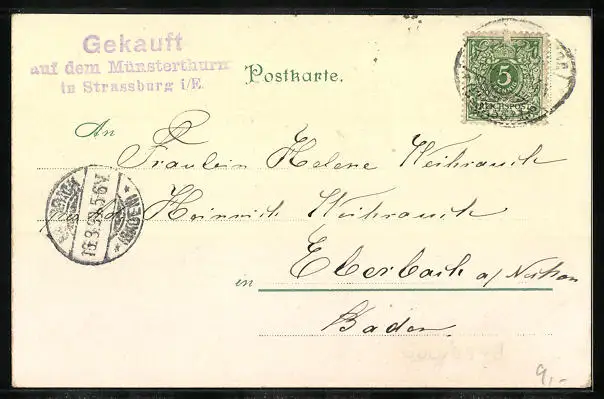 Gekauft
auf dem Münsterthurm
in Strassburg i/E.
Postkarte.
5
REICHSPOST
An
Fräulein Helene Weihrauch
Heinrich Weihrauch
in Eberbach a/ Neckar
Baden.
(BADEN)
5-6V.
9,-